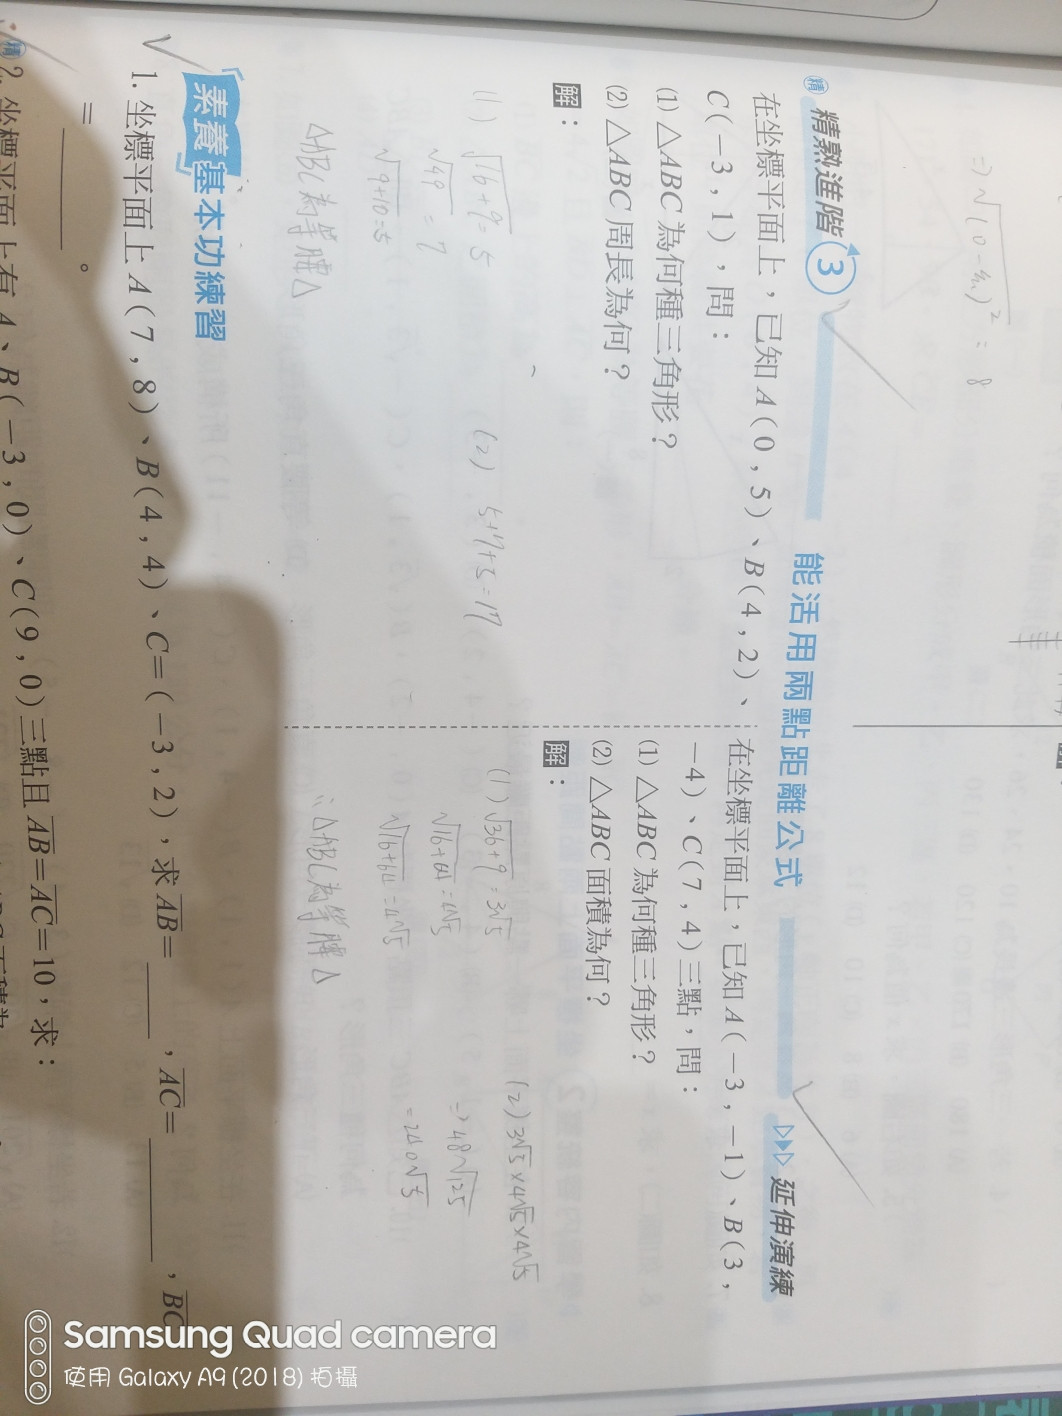 ⇒√(10-2)² = 8
精 精熟進階 3 能活用兩點距離公式 ▷▶▷ 延伸演練
在坐標平面上，已知 A(0,5)、B(4,2)、
C(-3,1)，問：
(1) △ABC 為何種三角形？
(2) △ABC 周長為何？
解：
(1) √16+9 = 5
√49 = 7
√9+10 = 5
△ABC為等腰△
(2) 5+7+5=17
在坐標平面上，已知 A(-3,-1)、B(3,
-4)、C(7,4)三點，問：
(1) △ABC 為何種三角形？
(2) △ABC 面積為何？
解：
(1) √36+9 = 3√5
√16+64 = 4√5
√16+64 = 4√5
∴△ABC為等腰△
(2) 3√5×4√5×4√5
⇒ 48√125
= 240√5
素養基本功練習
1. 坐標平面上 A(7,8)、B(4,4)、C=(-3,2)，求 AB=____，AC=____，BC
=____。
精 2. 坐標平面上有 A、B(-3,0)、C(9,0)三點且 AB=AC=10，求：
Samsung Quad camera
使用 Galaxy A9 (2018) 拍攝